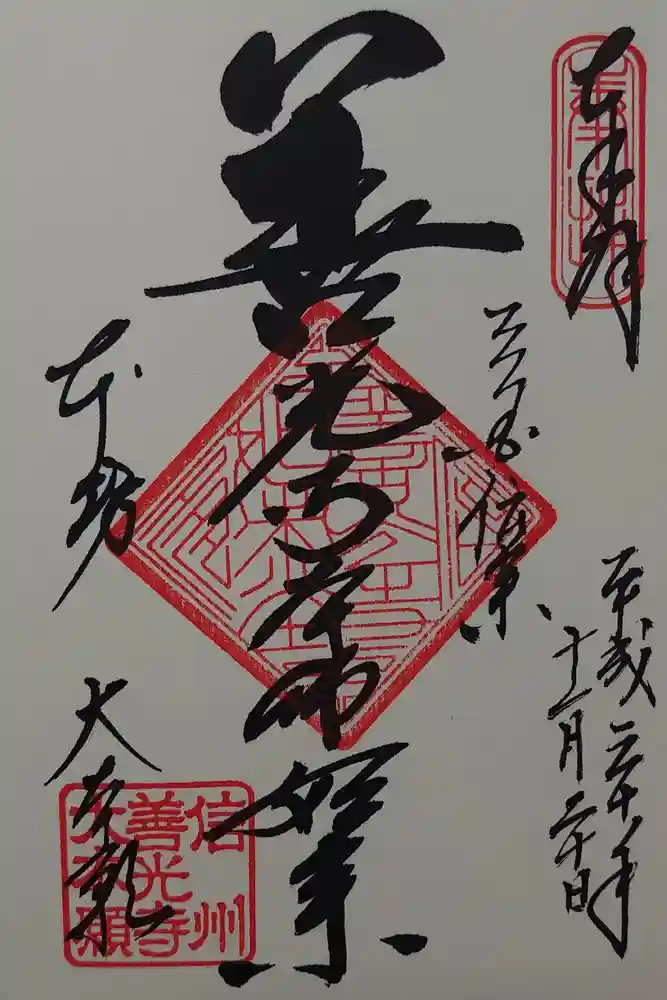 奉拝
三国伝来
平成二十八年
十一月二十日
善光寺本師如来
本坊
大本願
信州
善光寺
大本願